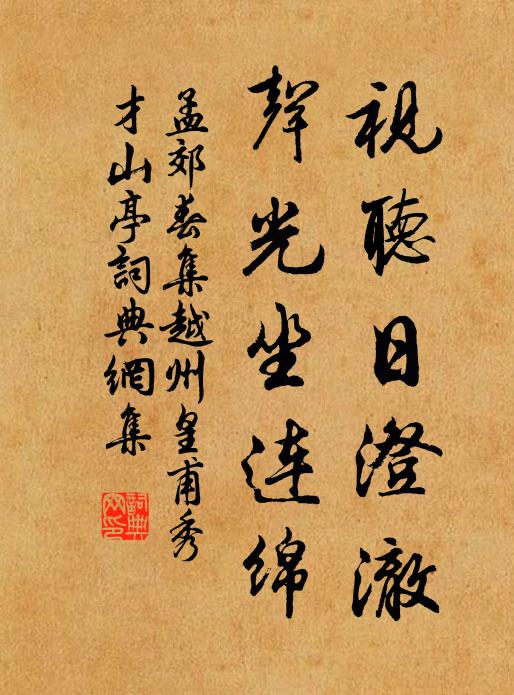 視聽日澄澈
聲光坐連綿
孟郊春集越州皇甫秀
才山亭詞典網集
詞典
网印